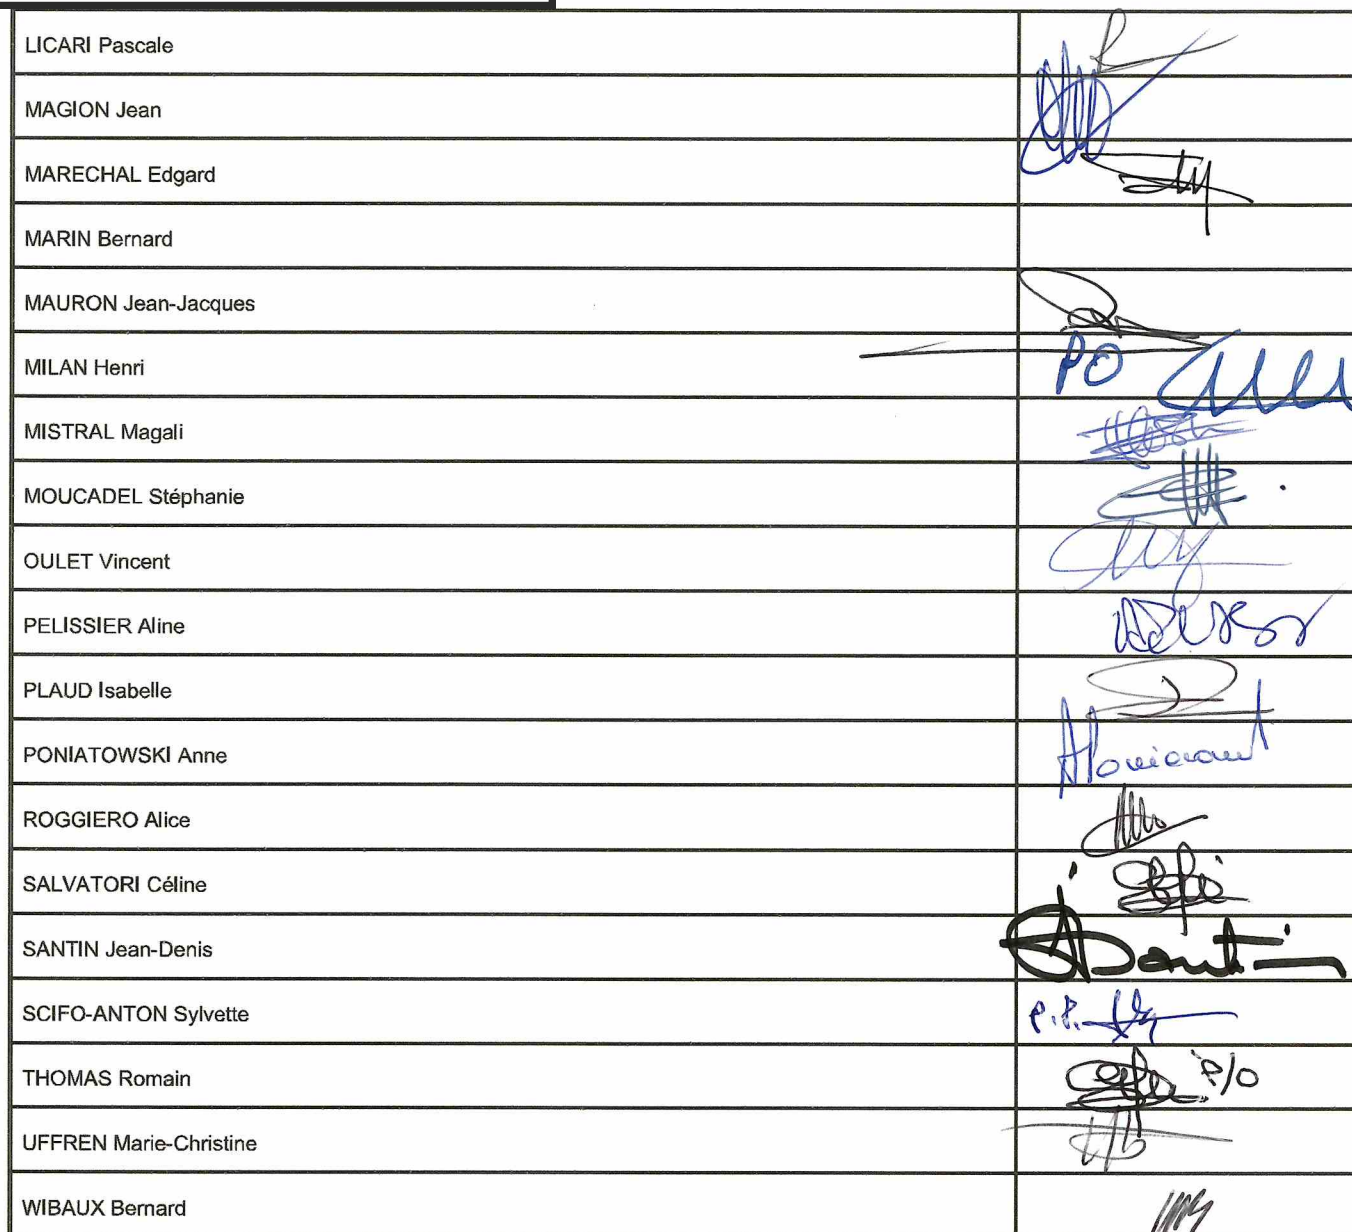 LICARI Pascale
MAGION Jean
MARECHAL Edgard
MARIN Bernard
MAURON Jean-Jacques
MILAN Henri
PO
MISTRAL Magali
MOUCADEL Stéphanie
OULET Vincent
PELISSIER Aline
PLAUD Isabelle
PONIATOWSKI Anne
ROGGIERO Alice
SALVATORI Céline
SANTIN Jean-Denis
SCIFO-ANTON Sylvette
P.P.
THOMAS Romain
P/O
UFFREN Marie-Christine
WIBAUX Bernard